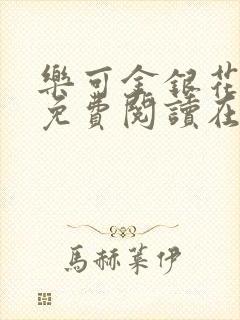 樂可金銀花
免費閱讀在
馬赫萊伊